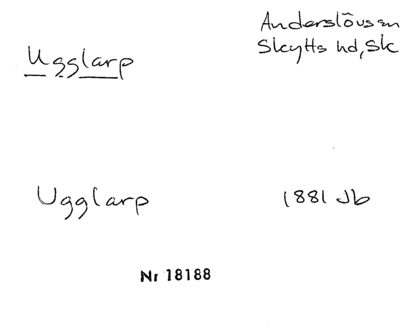 Anderslövs sn
Ugglarp
Skytts hd, Sk
Ugglarp
1881 Jb
Nr 18188